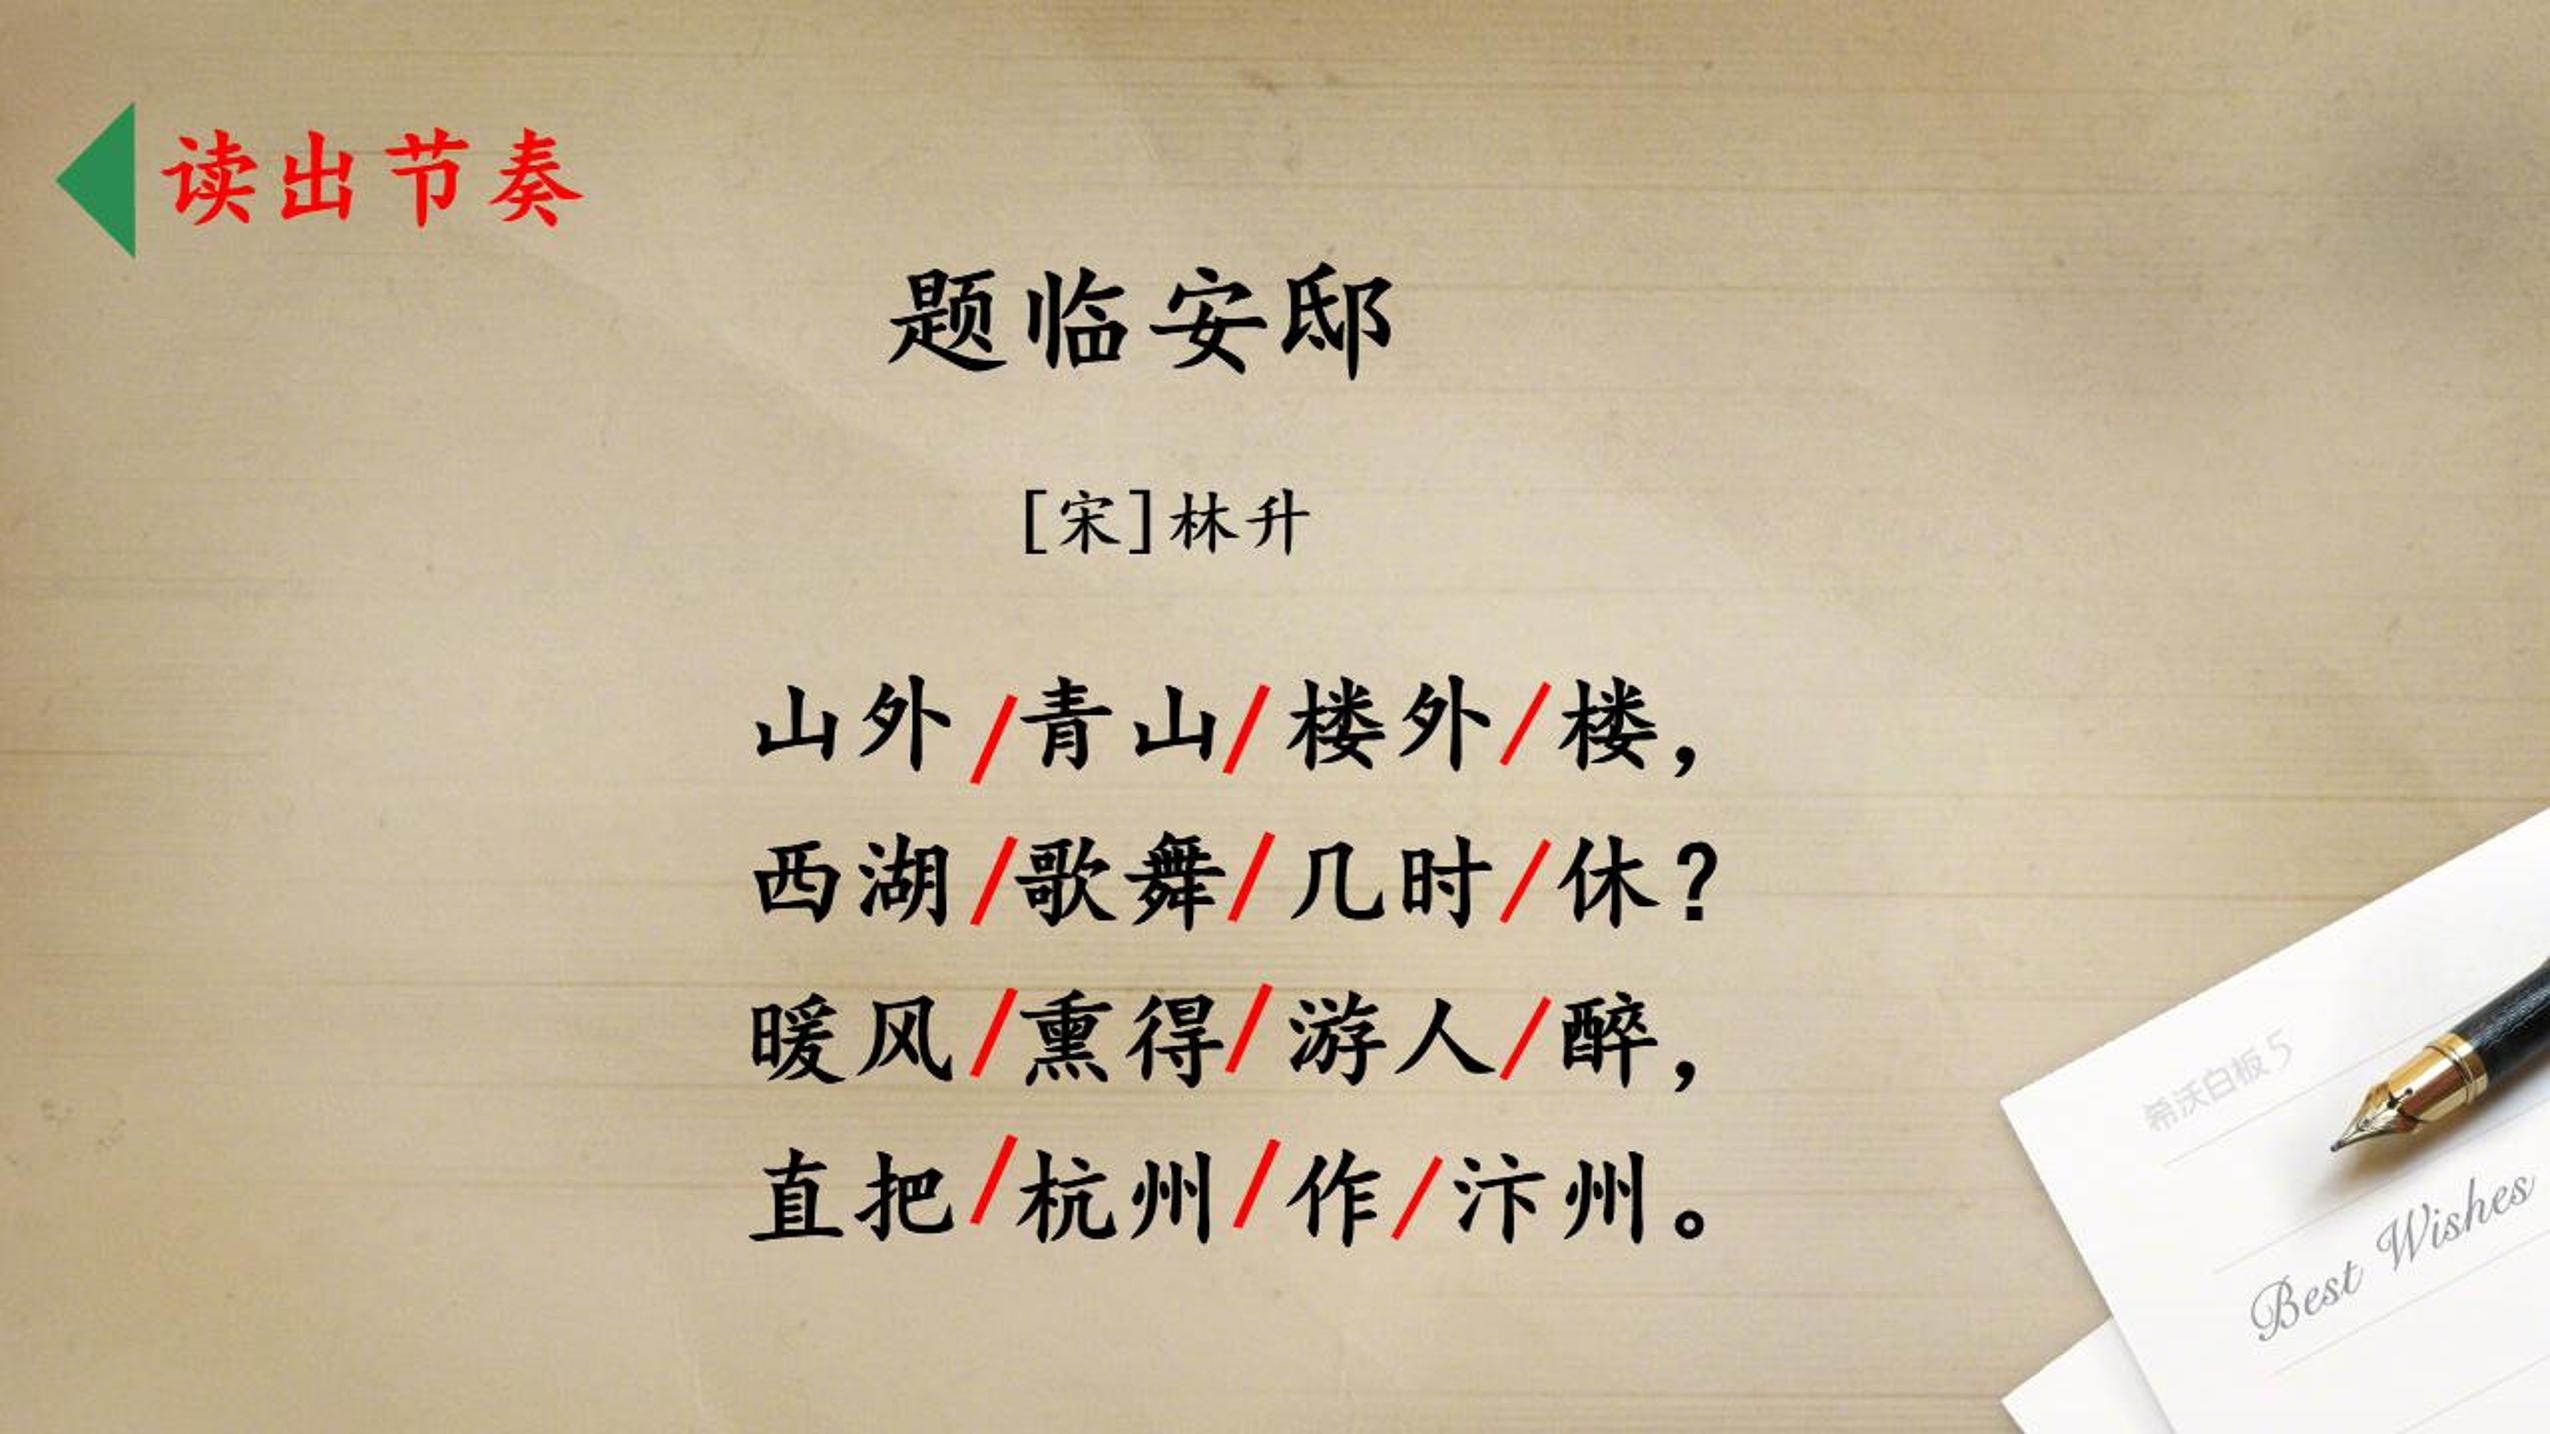 读出节奏
题临安邸
[宋]林升
山外/青山/楼外/楼，
西湖/歌舞/几时/休？
暖风/熏得/游人/醉，
直把/杭州/作/汴州。
希沃白板5
Best Wishes